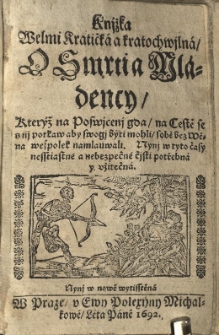 Knjžka
Welmi Kratičká a kratochwjlná/
O Smrti a Mlá-
dency/
Kterýž na Poswjcenj gda/ na Cestě se
s nj potkaw aby swogj býti mohli/ sobě bez Wě-
na wespolek namlauwali. Nynj w tyto časy
nesstiastné a nebezpečné čjsti potřebná
y vžitečná.
Nynj w nowě wytisstěná
W Praze/ v Ewy Polexyny Michal-
kowé/ Léta Páně 1692.